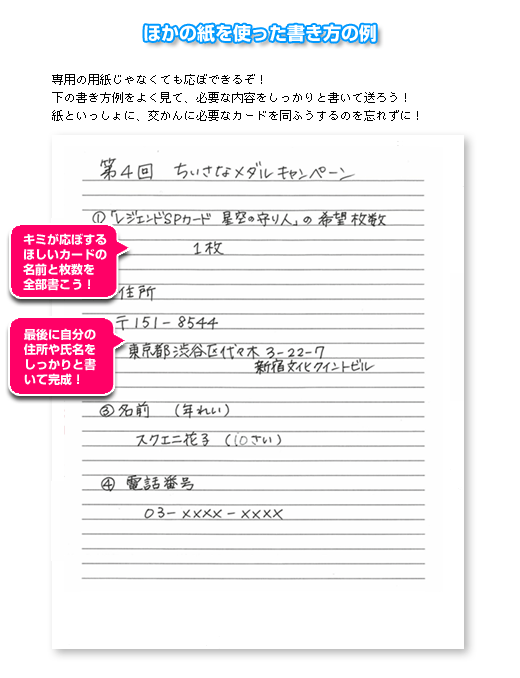 ほかの紙を使った書き方の例
専用の用紙じゃなくても応ぼできるぞ！
下の書き方例をよく見て、必要な内容をしっかりと書いて送ろう！
紙といっしょに、交かんに必要なカードを同ふうするのを忘れずに！
第4回 ちいさなメダルキャンペーン
①「レジェンドSPカード 星空の守り人」の希望枚数
1枚
キミが応ぼする
ほしいカードの
名前と枚数を
全部書こう！
住所
〒151-8544
東京都渋谷区代々木3-22-7
新宿文化クイントビル
最後に自分の
住所や氏名を
しっかりと書
いて完成！
③名前 （年れい）
スクエニ花子 （10さい）
④ 電話番号
03-xxxx-xxxx